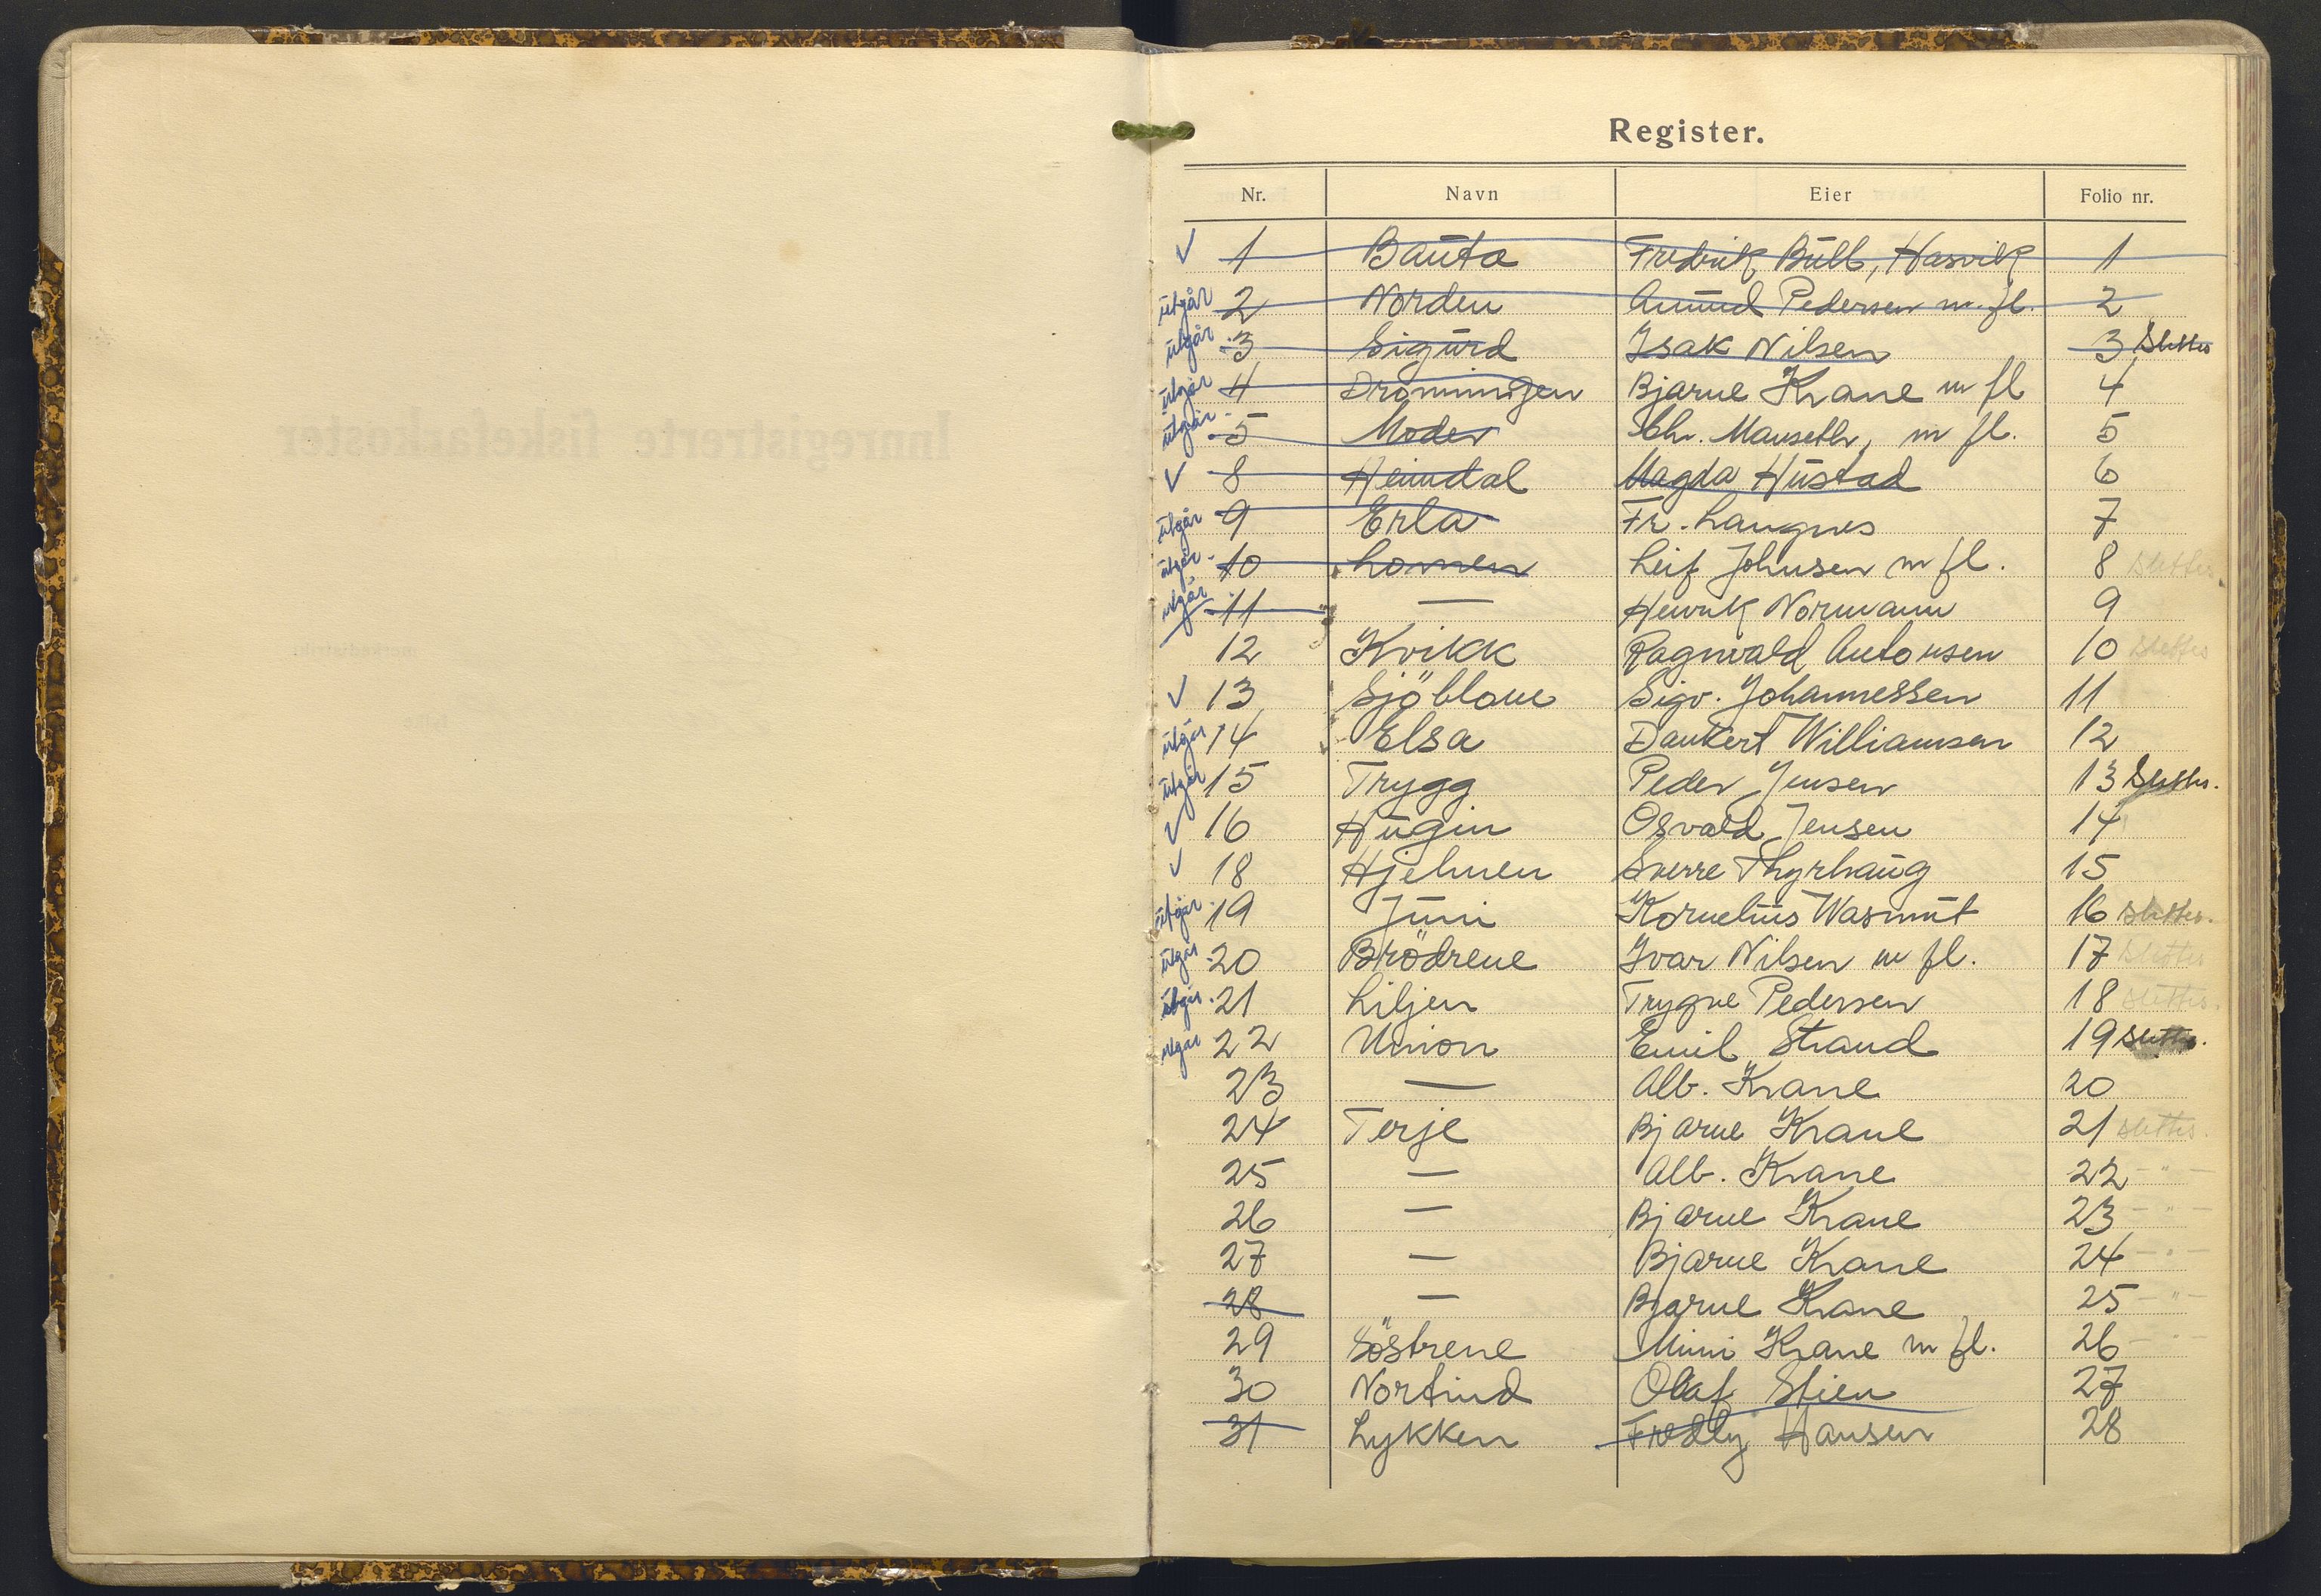 Innregistrerte fiskefarkoster
Register.
Nr. Navn Eier Folio nr.
✓ 1 Bauta Fredrik Bull, Hasvik 1
utgår 2 Norden Amund Pedersen m. fl. 2
utgår 3 Sigurd Isak Nilsen 3 Slettes
utgår 4 Dronningen Bjarne Krane m fl 4
utgår 5 Moder Chr. Mauseth, m fl. 5
✓ 8 Heimdal Magda Hustad 6
utgår 9 Erla Fr. Langnes 7
utgår 10 Lomen Leif Johnsen m fl. 8 Slettes.
utgår 11 — Henrik Normann 9
12 Kvikk Ragnvald Antonsen 10 Slettes
✓ 13 Sjöblom Sigv. Johannessen 11
utgår 14 Elsa Dankert Williamsen 12
utgår 15 Trygg Peder Jensen 13 Slettes.
✓ 16 Hugin Osvald Jensen 14
✓ 18 Hjelmen Sverre Thyrhaug 15
utgår 19 Juni Kornelius Wasmut 16 Slettes.
utgår 20 Brödrene Ivar Nilsen m fl. 17 Slettes
utgår 21 Liljen Trygve Pedersen 18 Slettes.
utgår 22 Union Emil Strand 19 Slettes.
23 — Alb. Krane 20
24 Terje Bjarne Krane 21 slettes.
25 — Alb. Krane 22 - " -
26 — Bjarne Krane 23 - " -
27 — Bjarne Krane 24 - " -
28 — Bjarne Krane 25 - " -
29 Söstrene Mimi Krane m fl. 26 - " -
30 Nortind Olaf Stien 27
31 Lykken Fredly Hansen 28